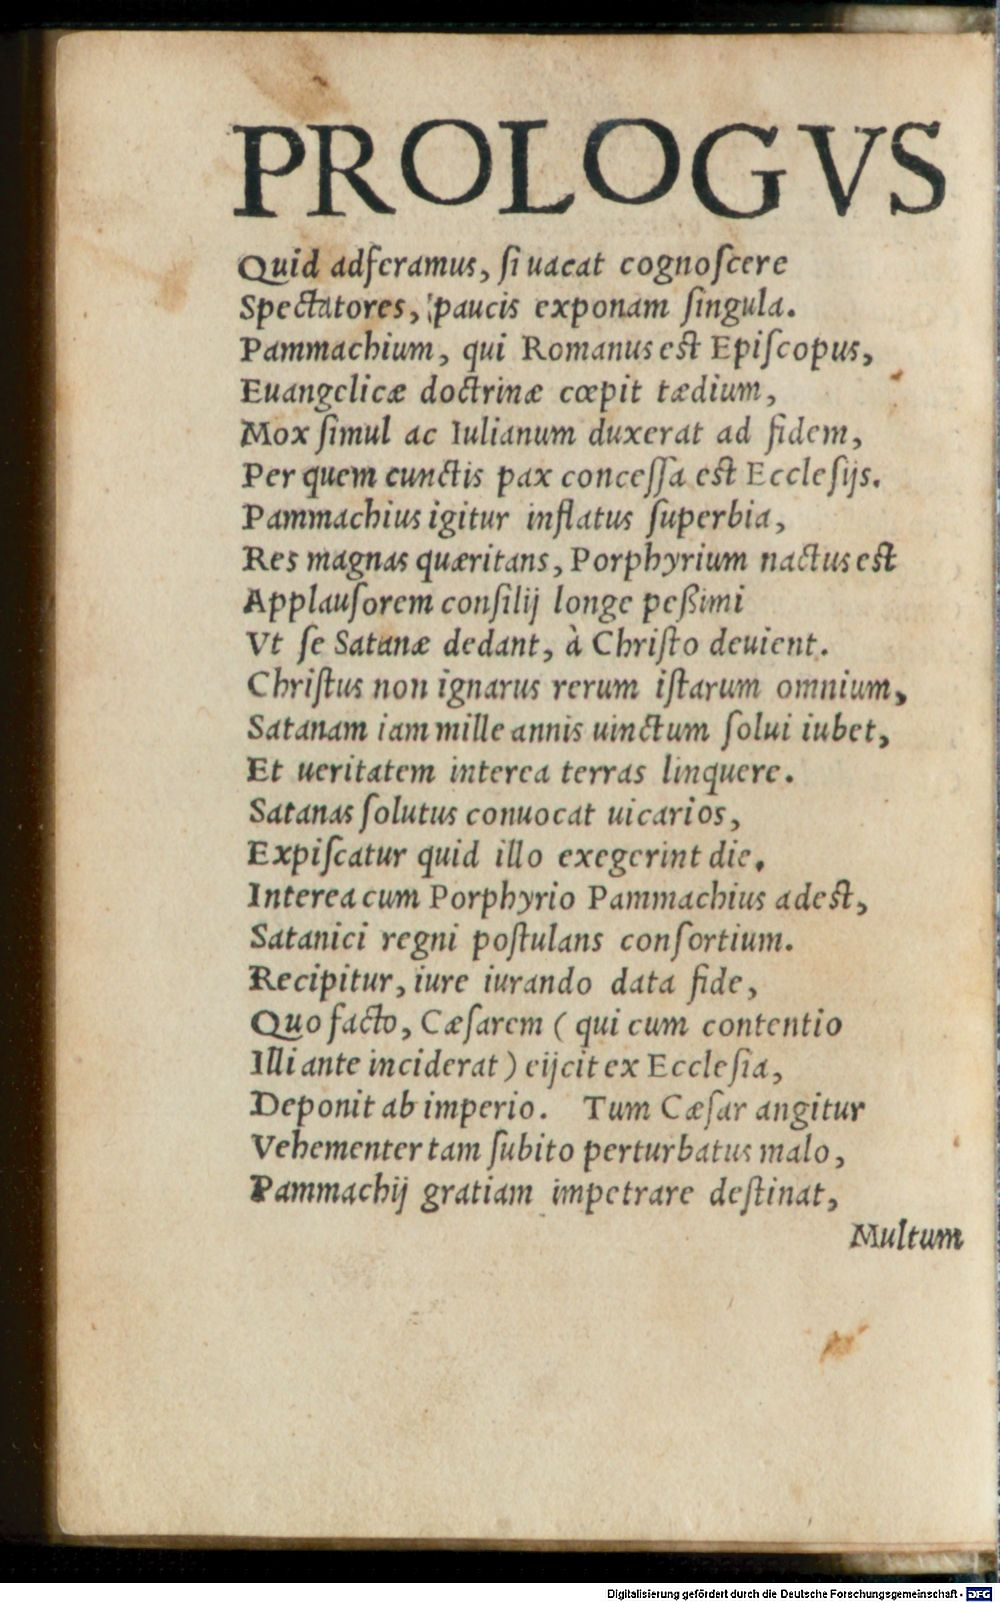 PROLOGVS
Quid adferamus, ſi uacat cognoſcere
Spectatores, paucis exponam ſingula.
Pammachium, qui Romanus est Epiſcopus,
Euangelicæ doctrinæ cœpit tædium,
Mox ſimul ac Iulianum duxerat ad fidem,
Per quem cunctis pax conceſſa est Eccleſijs.
Pammachius igitur inflatus ſuperbia,
Res magnas quæritans, Porphyrium nactus est
Applauſorem conſilij longe peßimi
Vt ſe Satanæ dedant, à Chriſto deuient.
Chriſtus non ignarus rerum iſtarum omnium,
Satanam iam mille annis uinctum ſolui iubet,
Et ueritatem interea terras linquere.
Satanas ſolutus conuocat uicarios,
Expiſcatur quid illo exegerint die.
Interea cum Porphyrio Pammachius adest,
Satanici regni poſtulans conſortium.
Recipitur, iure iurando data fide,
Quo facto, Cæſarem ( qui cum contentio
Illi ante inciderat ) eijcit ex Eccleſia,
Deponit ab imperio. Tum Cæſar angitur
Vehementer tam ſubito perturbatus malo,
Pammachij gratiam impetrare deſtinat,
Multum
Digitalisierung gefördert durch die Deutsche Forschungsgemeinschaft - DFG